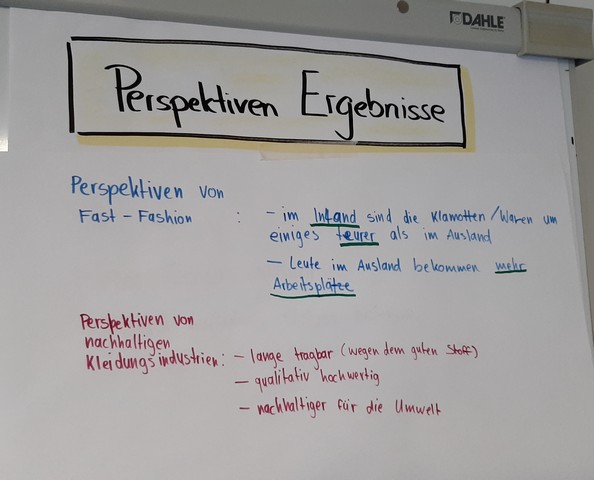 DAHLE
Perspektiven Ergebnisse
Perspektiven von
Fast-Fashion : - im Inland sind die Klamotten/Waren um
einiges teurer als im Ausland
- Leute im Ausland bekommen mehr
Arbeitsplätze
Perspektiven von
nachhaltigen
Kleidungsindustrien: - lange tragbar (wegen dem guten Stoff)
- qualitativ hochwertig
- nachhaltiger für die Umwelt